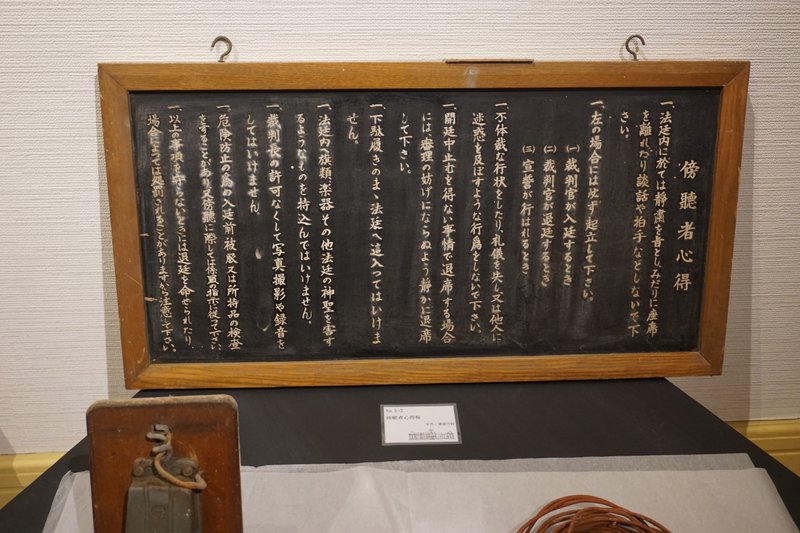 傍聽者心得
一、法廷内に於ては静粛を旨としみだりに座席
を離れたり談話や拍手などしないで下
さい。
一、左の場合には必ず起立して下さい。
(一) 裁判官が入廷するとき
(二) 裁判官が退廷するとき
(三) 宣誓が行はれるとき
一、不体裁な行状をしたり、礼儀を失し又は他人に
迷惑を及ぼすような行為をしないで下さい。
一、開廷中止むを得ない事情で退席する場合
には、審理の妨げにならぬよう静かに退席
して下さい。
一、下駄履きのまゝ法廷へ這入ってはいけま
せん。
一、法廷内へ旗類、楽器その他法廷の神聖を害す
るようなものを持込んではいけません。
一、裁判長の許可なくして写真撮影や録音を
してはいけません。
一、危険防止の為め入廷前被服又は所持品の検査
をすることがあり又傍聴に際しては係員の指示に従って下さい。
一、以上の事項を守らないときには退廷を命せられたり、
場合によっては処罰されることがありますから注意して下さい。
No. 5-2
傍聴者心得板